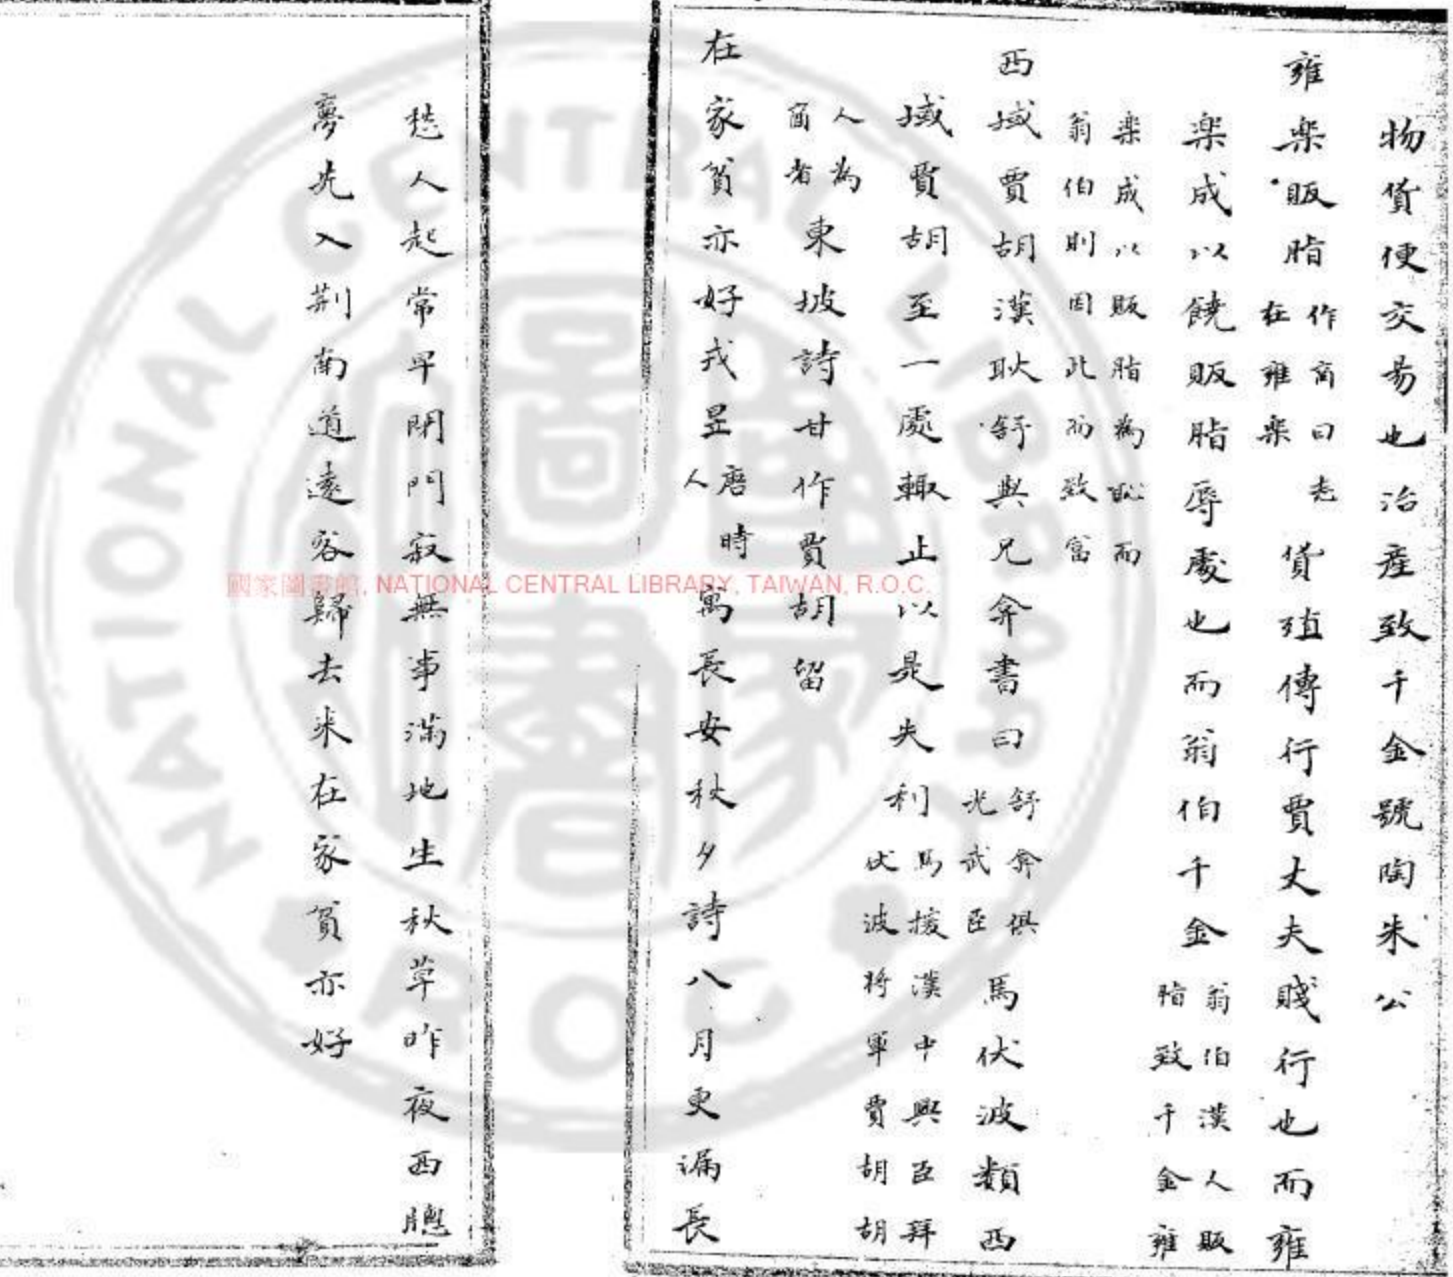 物貨便交易也治産致千金號陶朱公
雍楽販脂作啇曰老在雍楽貨殖傳行賈丈夫賤行也而雍
楽成以饒販脂辱處也而翁伯千金翁伯漢人販脂致千金雍
楽成以販脂為恥而翁伯則因此而致富
西域賈胡漢耿舒與兄弇書曰舒弇俱光武臣馬伏波類西
域賈胡至一處輙止以是失利馬援漢中興臣拜伏波将軍賈胡胡
人為啇者東坡詩甘作賈胡留
在家貧亦好戎昱唐時人寓長安秋夕詩八月更漏長
愁人起常早閉門寂無事滿地生秋草昨夜西牕
夢先入荆南道遠客歸去来在家貧亦好
國家圖書館, NATIONAL CENTRAL LIBRARY, TAIWAN, R.O.C.
NATIONAL CENTRAL LIBRARY
R O C
國家圖書